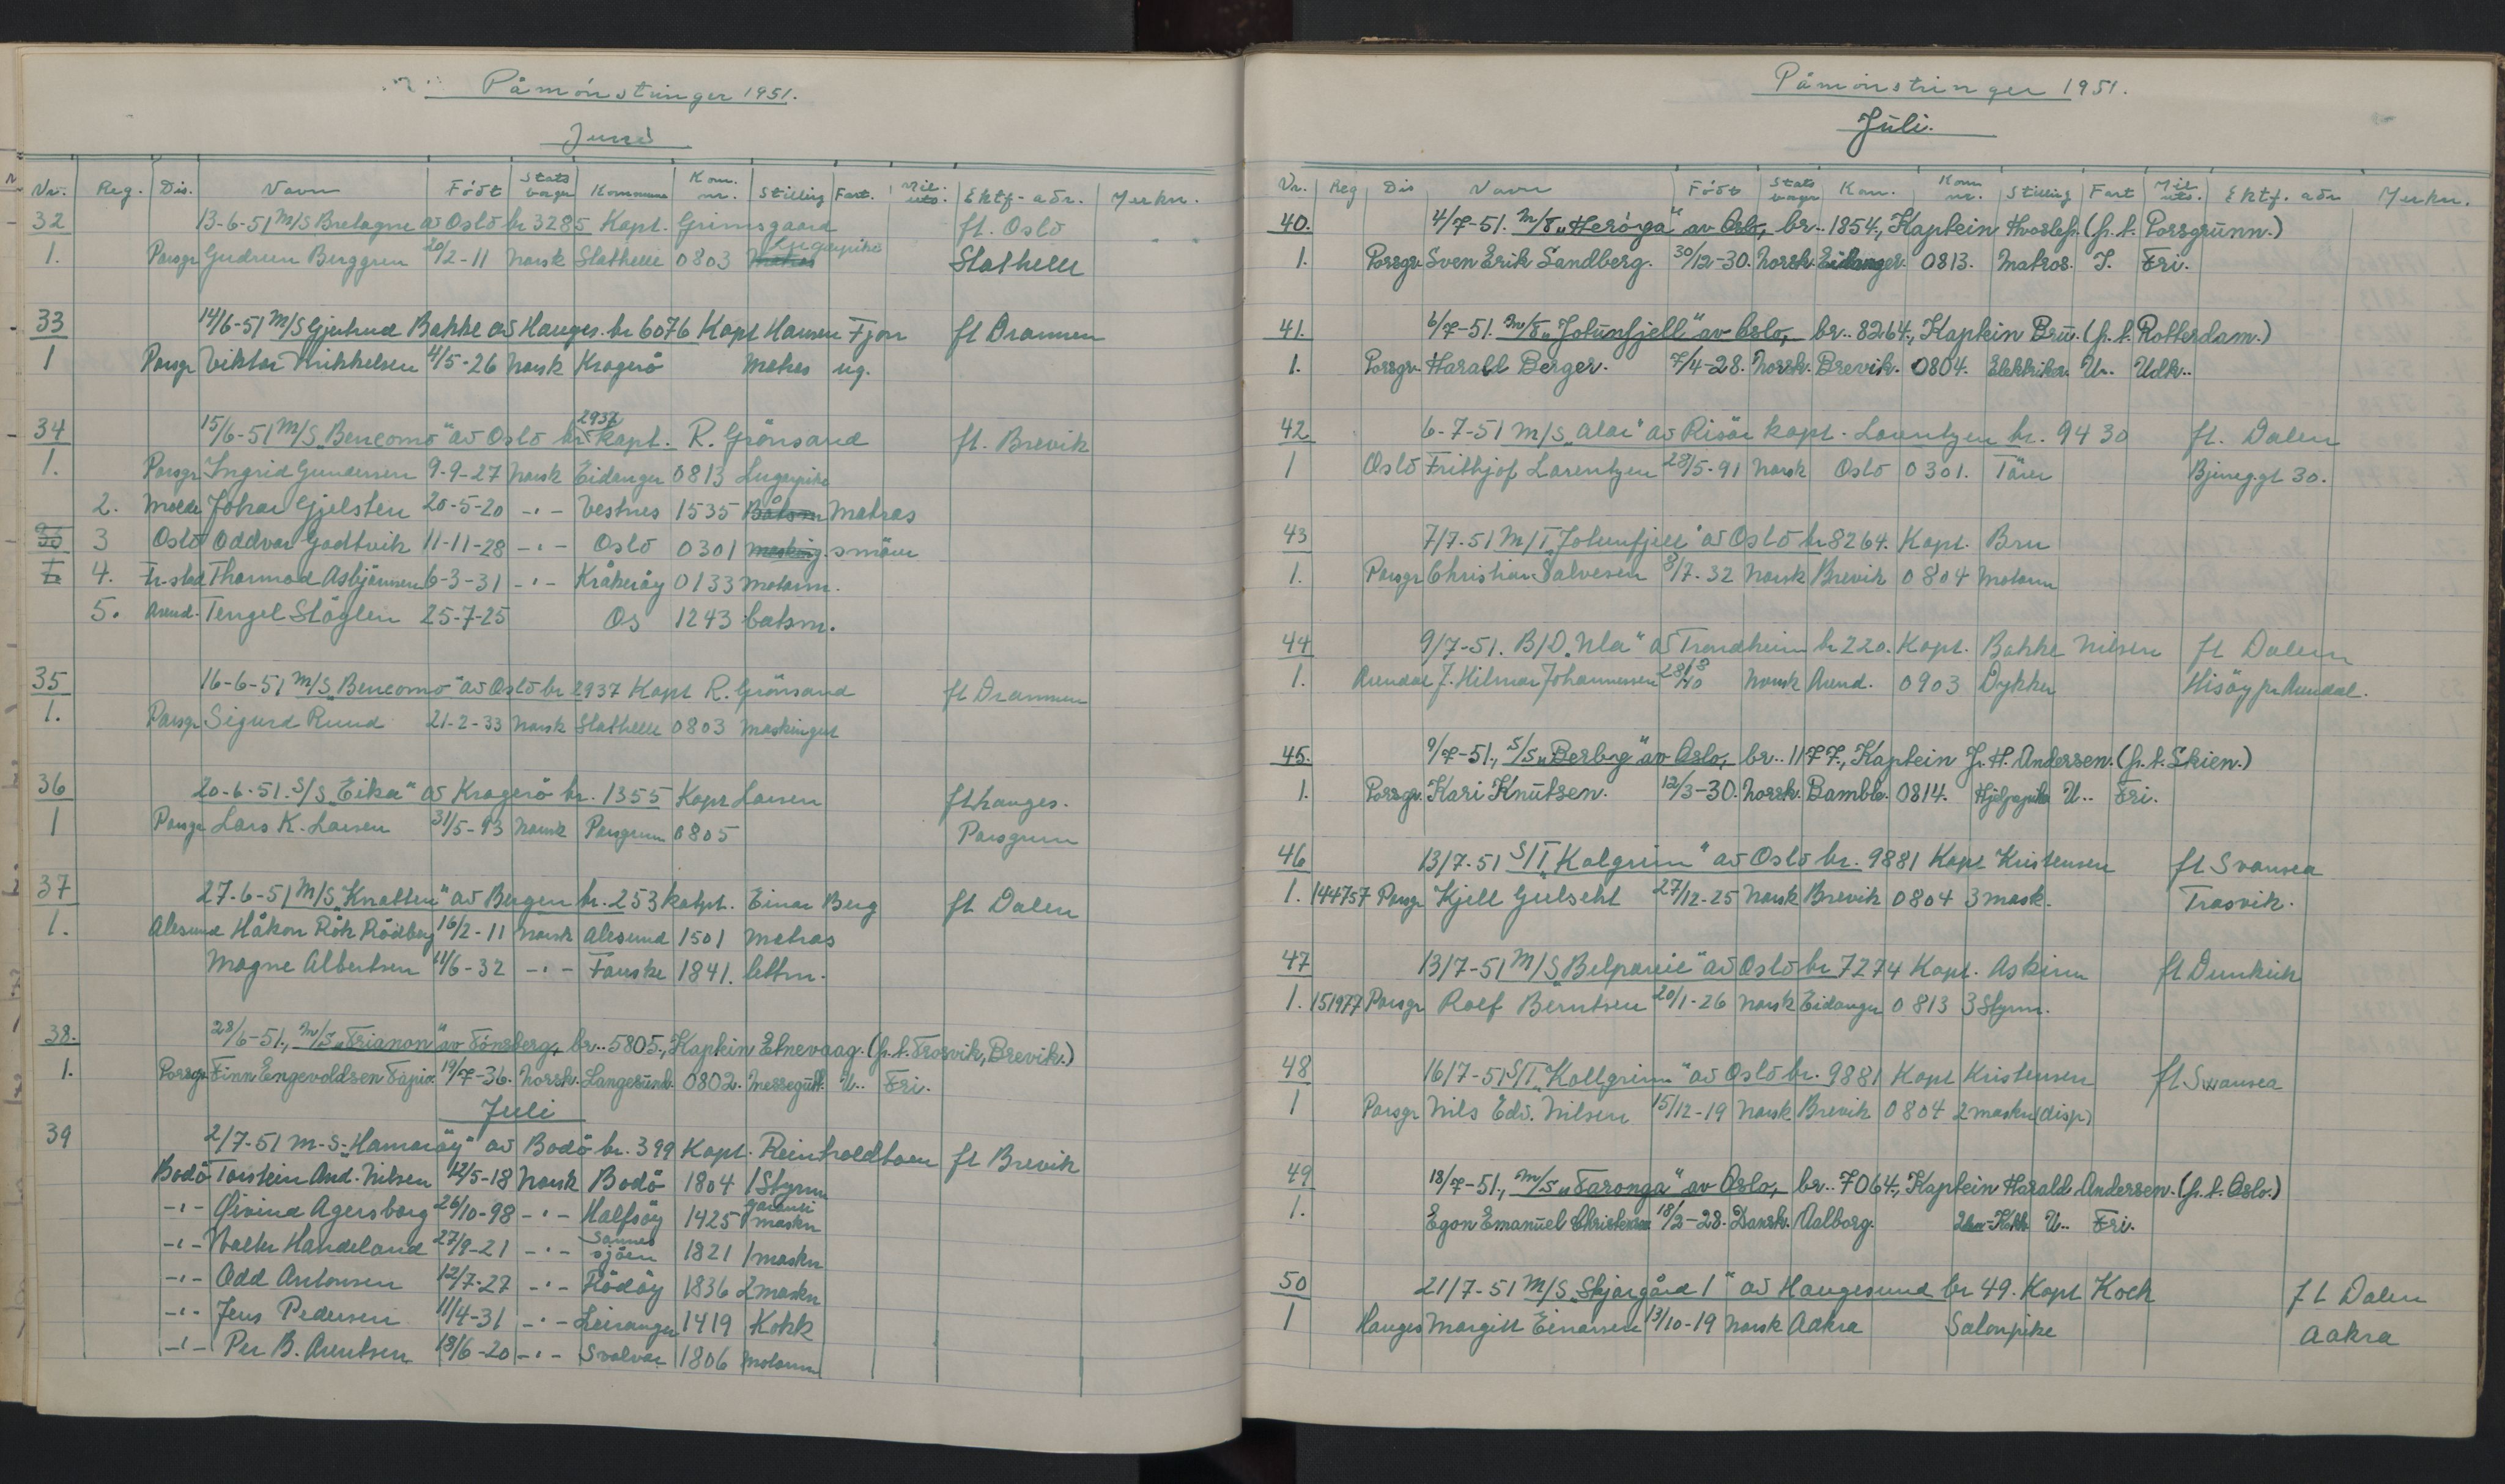 Påmönstringer 1951.
Juni
Nr. Reg. Dis. Navn Födt Stats borger Kommune Kom. nr. Stilling Fart. Mil. uts. Ektf-adr. Merkn.
32 13-6-51 M/S Bretagne av Oslo br 3285 Kapt. Grimsgaard ft. Oslo
1. Porsgr Gudrun Berggren 20/2-11 norsk Stathelle 0803 Matros Lugarpike Stathelle
33 14/6-51 M/S Gjertrud Bakke av Hauges. br 6076 Kapt Hansen Fjon ft Drammen
1 Porsgr Viktor Mikkelsen 4/5-26 norsk Kragerö Matros ug.
34 15/6-51 M/S „Bencomo" av Oslo br 2937 Kapt. R. Grönsand ft. Brevik
1. Porsgr Ingrid Gundersen 9-9-27 norsk Eidanger 0813 Lugarpike
2. Molde Johan Gjelsten 20-5-20 -"- Vestnes 1535 Båtsm Matros
35 3 Oslo Oddvar Godtvik 11-11-28 -"- Oslo 0301 masking. smörer
4. Fr-stad Thormod Asbjörnsen 6-3-31 -"- Kråkeröy 0133 motorm.
5. Arend. Tengel Stöglen 25-7-25 Os 1243 batsm.
35 16-6-51 M/S „Bencomo" av Oslo br 2937 Kapt R. Grönsand ft Drammen
1. Porsgr Sigurd Ruud 21-2-33 norsk Stathelle 0803 Maskingut
36 20-6-51. S/S „Eika" av Kragerö br. 1355 Kapt Larsen ft Langes.
1 Porsgr Lars K. Larsen 31/5-93 norsk Porsgrunn 0805 Porsgrunn
37 27-6-51 M/S „Knatten" av Bergen br. 253 kapt. Einar Berg ft Dalen
1. Alesund Håkon Rök Rödberg 16/2-11 norsk Alesund 1501 matros
Magne Albertsen 11/6-32 -"- Fauske 1841. lettm.
38. 28/6-51., M/S „Trianon" av Tönsberg, br. 5805., Kaptein Etnevaag. (p.t. Trosvik, Brevik.)
1. Porsgr. Finn Engevoldsen Tapio. 19/7-36. Norsk. Langesund. 0802. Messegutt. U.. Fri.
Juli
39 2/7-51 M-S- „Hamaröy" av Bodö br. 399 Kapt. Reinholdtsen ft Brevik
Bodö Torstein And. Nilsen 12/5-18 Norsk Bodö 1804 1 Styrm
-"- Öivind Agersborg 26/10-98 -"- Halfsöy 1425 garanti maskn
-"- Walter Handeland 27/9-21 -"- Sannes sjöen 1821 1 maskn
-"- Odd Antonsen 12/7-27 -"- Rödöy 1836 2 maskn
-"- Jens Pedersen 11/4-31 -"- Leiranger 1419 Kokk
-"- Per B. Arentsen 18/6-20 -"- Svolvær 1806 Motorm
Påmönstringer 1951.
Juli.
Nr. Reg Dis Navn Födt Stats borger Kom. Kom nr. Stilling Fart Mil. uts. Ektf. adr Merkn.
40. 4/7-51. M/S „Heröya" av Oslo, br. 1854., Kaptein Hvoslef. (p.t. Porsgrunn.)
1. Porsgr. Sven Erik Sandberg. 30/12-30. Norsk. Eidanger. 0813. Matros. I. Fri.
41. 6/7-51. M/S „Jotunfjell" av Oslo, br. 8264., Kaptein Bru. (p.t. Rotterdam.)
1. Porsgr. Harald Berger. 7/4-28. Norsk. Brevik. 0804. Elektriker. U.. Udk..
42 6-7-51 M/S „Alar" av Risör kapt. Lorentzen br. 9430 ft. Dalen
1 Oslo Frithjof Lorentzen 28/5-91 norsk Oslo 0301. Förer Bjerreg.gt 30.
43 7/7-51 M/T „Jotunfjell" av Oslo br 8264. Kapt. Bru
1. Porsgr Christian Salvesen 8/7-32 Norsk Brevik 0804 Motorm
44 9/7-51. B/D „Ula" av Trondheim br 220. Kapt. Bakke Nilsen ft Dalen
1. Arendal J. Hilmar Johannessen 28/8 10 Norsk Arend. 0903 Dykker Hisöy pr Arendal.
45. 9/7-51., S/S „Berbrg" av Oslo, br. 1177., Kaptein J. H. Andersen. (p.t. Skien.)
1. Porsgr. Kari Knutsen. 12/3-30. Norsk. Bamble. 0814. Hjelpepike U.. Fri.
46 13/7-51 S/T „Kolgrim" av Oslo br. 9881 Kapt Kristensen ft Svansea
1. 144757 Porsgr Kjell Gulseht 27/12-25 Norsk Brevik 0804 3 mask. Trosvik.
47 13/7-51 M/S „Belpareil" av Oslo br 7274 Kapt. Askim ft Dunkirk
1. 151977 Porsgr Rolf Berntsen 20/1-26 norsk Eidanger 0813 3 Styrm.
48 16/7-51 S/T „Kollgrim" av Oslo br. 9881 Kapt Kristensen ft Swansea
1 Porsgr Nils Edv. Nilsen 15/12-19 Norsk Brevik 0804 2 maskn (disp)
49 18/7-51., M/S „Taronga" av Oslo, br. 7064., Kaptein Harald Andersen. (p.t. Oslo.)
1. Egon Emanuel Christensen 18/2-28. Dansk. Aalborg. 2den-Kokk U.. Fri.
50 21/7-51 M/S „Skjærgård 1" av Haugesund br 49. Kapt Koch ft Dalen
1 Hauges Margitt Einarsen 13/10-19 Norsk Aakra Salonpike Aakra